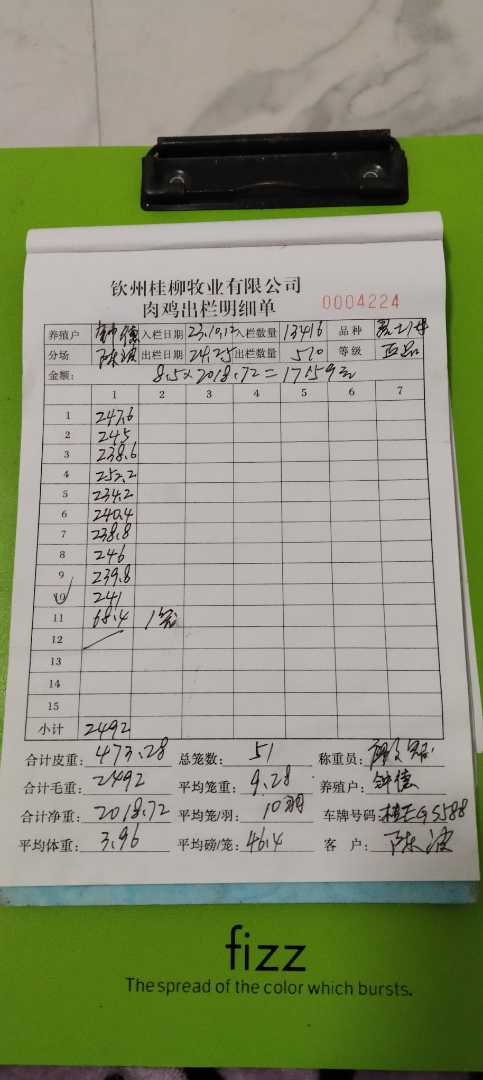 钦州桂柳牧业有限公司
肉鸡出栏明细单 0004224
养殖户 钟德 入栏日期 23.10.12 入栏数量 13416 品种
分场 陈波 出栏日期 24.2.5 出栏数量 510 等级 正品
金额: 8.5×2018.72=17159元
1 2 3 4 5 6 7
1 247.6
2 245
3 238.6
4 252.2
5 234.2
6 240.4
7 238.8
8 246
9 239.8
10 241
11 68.4 1笼
12
13
14
15
小计 2492
合计皮重: 473.28 总笼数: 51 称重员:
合计毛重: 2492 平均笼重: 9.28 养殖户: 钟德
合计净重: 2018.72 平均笼/羽: 10羽 车牌号码: 桂EGS588
平均体重: 3.96 平均磅/笼: 46.4 客 户: 陈波
fizz
The spread of the color which bursts.